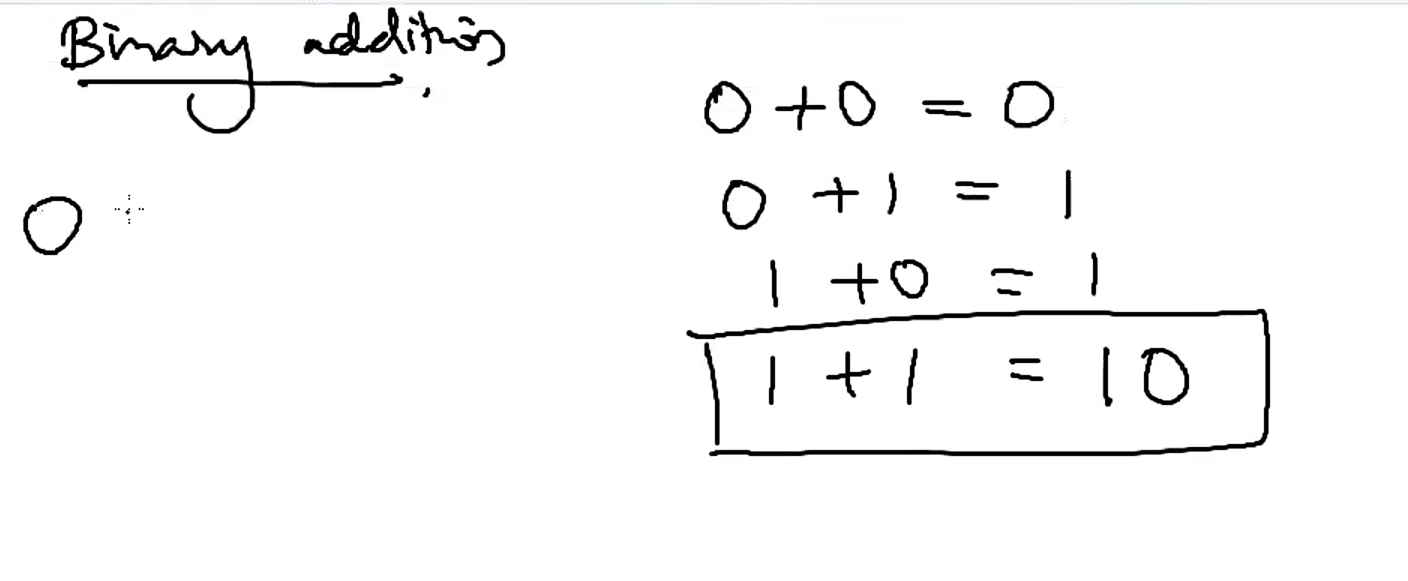 Binary addition
0
0 + 0 = 0
0 + 1 = 1
1 + 0 = 1
1 + 1 = 10